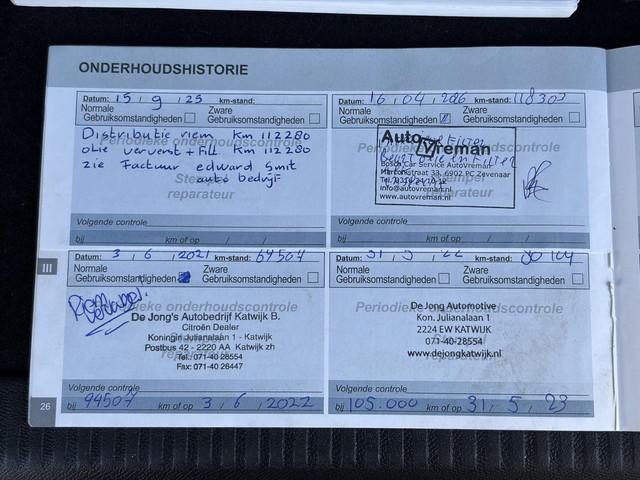 ONDERHOUDSHISTORIE
Datum: 15 / 9 / 25 km-stand:
Normale Gebruiksomstandigheden
Zware Gebruiksomstandigheden
Distributie riem km 112280
olie ververst + Filt km 112280
zie Factuur edward Smit
auto bedrijf
Periodieke onderhoudscontrole
reparateur
Volgende controle
bij km of op / /
Datum: 16 / 04 / km-stand:
Normale Gebruiksomstandigheden
Zware Gebruiksomstandigheden
Auto Vreman
Bosch Car Service AutoVreman
33, 6902 PC Zevenaar
info@autovreman.nl
www.autovreman.nl
reparateur
Volgende controle
bij km of op / /
III
Datum: 3 / 6 / 2021 km-stand: 64504
Normale Gebruiksomstandigheden
Zware Gebruiksomstandigheden
Periodieke onderhoudscontrole
De Jong's Autobedrijf Katwijk B.
Citroën Dealer
Koningin Julianalaan 1 - Katwijk
Postbus 42 - 2220 AA Katwijk zh
Tel.: 071-40 28554
Fax: 071-40 26447
reparateur
Volgende controle
bij 94507 km of op 3 / 6 / 2022
Datum: km-stand:
Normale Gebruiksomstandigheden
Zware Gebruiksomstandigheden
Periodieke onderhoudscontrole
De Jong Automotive
Kon. Julianalaan 1
2224 EW KATWIJK
071-40-28554
www.dejongkatwijk.nl
reparateur
Volgende controle
bij 105.000 km of op 31 / 5 / 23
26